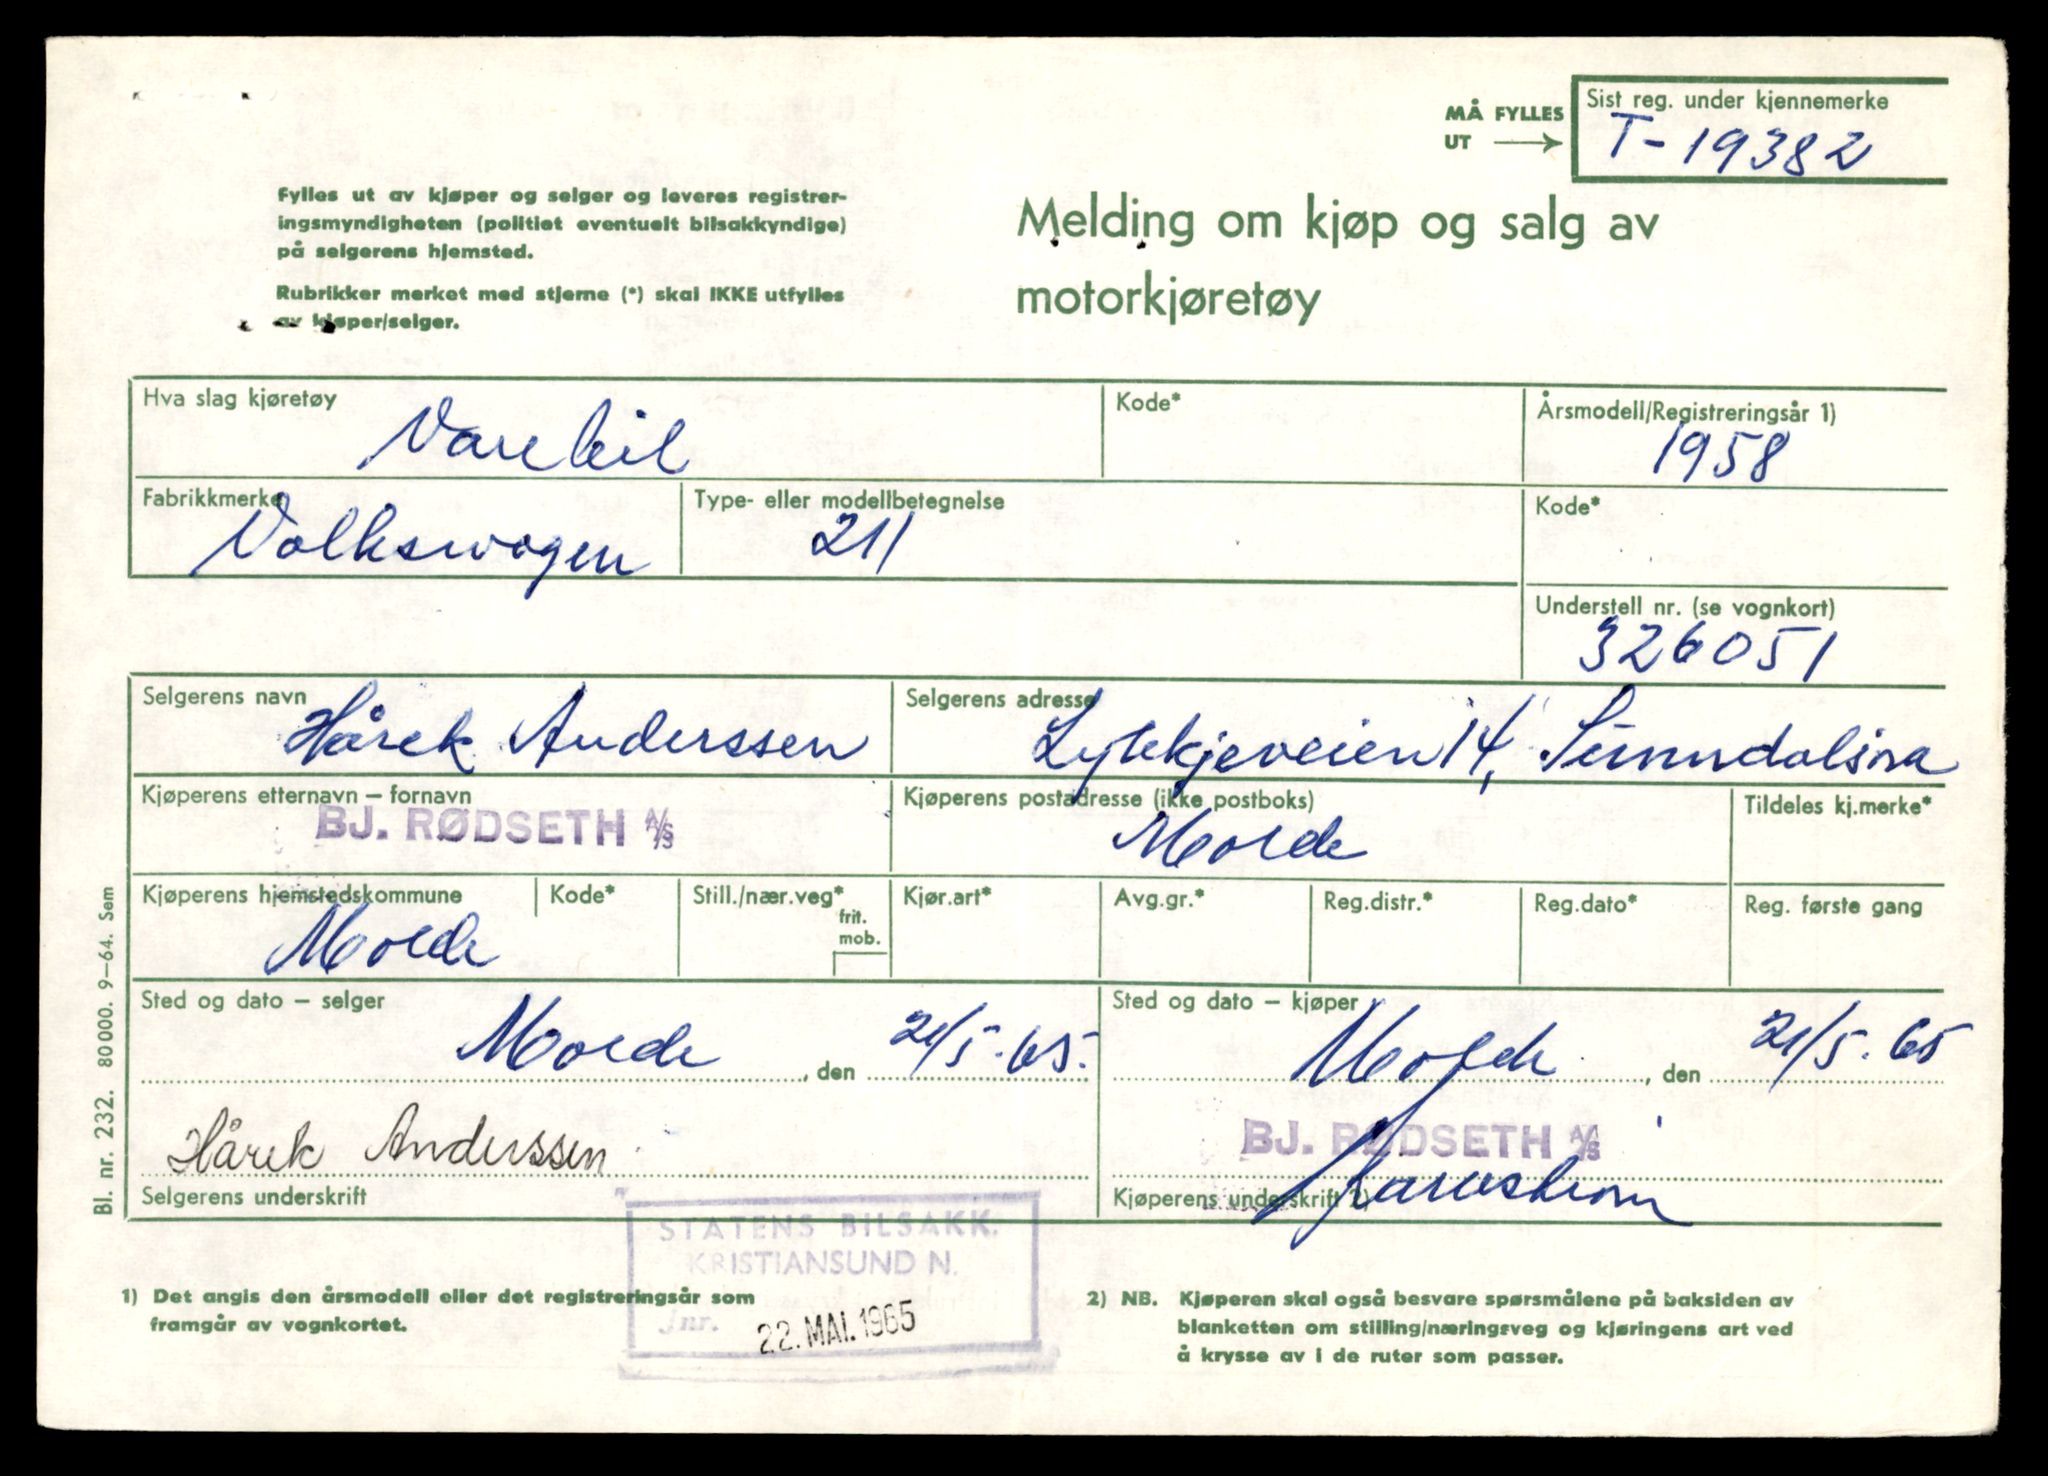 MÅ FYLLES
UT
Sist reg. under kjennemerke
T-19382
Fylles ut av kjøper og selger og leveres registrer-
ingsmyndigheten (politiet eventuelt bilsakkyndige)
på selgerens hjemsted.
Rubrikker merket med stjerne (*) skal IKKE utfylles
av kjøper/selger.
Melding om kjøp og salg av
motorkjøretøy
Hva slag kjøretøy
Varebil
Kode*
Årsmodell/Registreringsår 1)
1958
Fabrikkmerke
Volkswogen
Type- eller modellbetegnelse
211
Kode*
Understell nr. (se vognkort)
326051
Selgerens navn
Hårek Anderssen
Selgerens adresse
Lykkjeveien 14, Sunndalsøra
Kjøperens etternavn – fornavn
BJ. RØDSETH A/S
Kjøperens postadresse (ikke postboks)
Molde
Tildeles kj.merke*
Kjøperens hjemstedskommune
Molde
Kode*
Still./nær.veg*
frit.
mob.
Kjør.art*
Avg.gr.*
Reg.distr.*
Reg.dato*
Reg. første gang
Sted og dato – selger
Molde, den 21/5.65.
Sted og dato – kjøper
Molde, den 21/5.65
Hårek Anderssen
Selgerens underskrift
BJ. RØDSETH A/S
Kjøperens underskrift 2)
Bl. nr. 232. 80000. 9–64. Sem
STATENS BILSAKK.
KRISTIANSUND N.
Jnr.
22. MAI. 1965
1) Det angis den årsmodell eller det registreringsår som
framgår av vognkortet.
2) NB. Kjøperen skal også besvare spørsmålene på baksiden av
blanketten om stilling/næringsveg og kjøringens art ved
å krysse av i de ruter som passer.